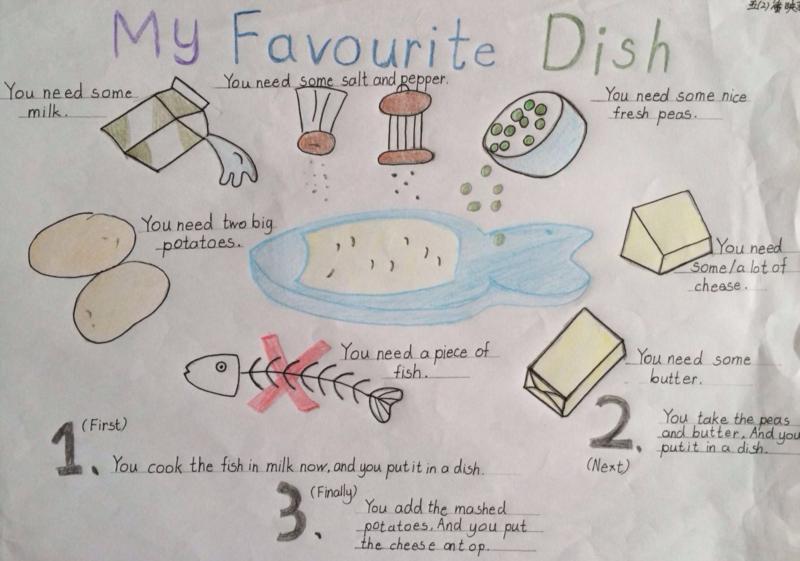 五(2)
My Favourite Dish
You need some
milk.
You need some salt and pepper.
You need some nice
fresh peas.
You need two big
potatoes.
You need
some/a lot of
chease.
You need a piece of
fish.
You need some
butter.
1. (First)
You cook the fish in milk now, and you put it in a dish.
2. (Next)
You take the peas
and butter. And you
put it in a dish.
3. (Finally)
You add the mashed
potatoes. And you put
the cheese on top.